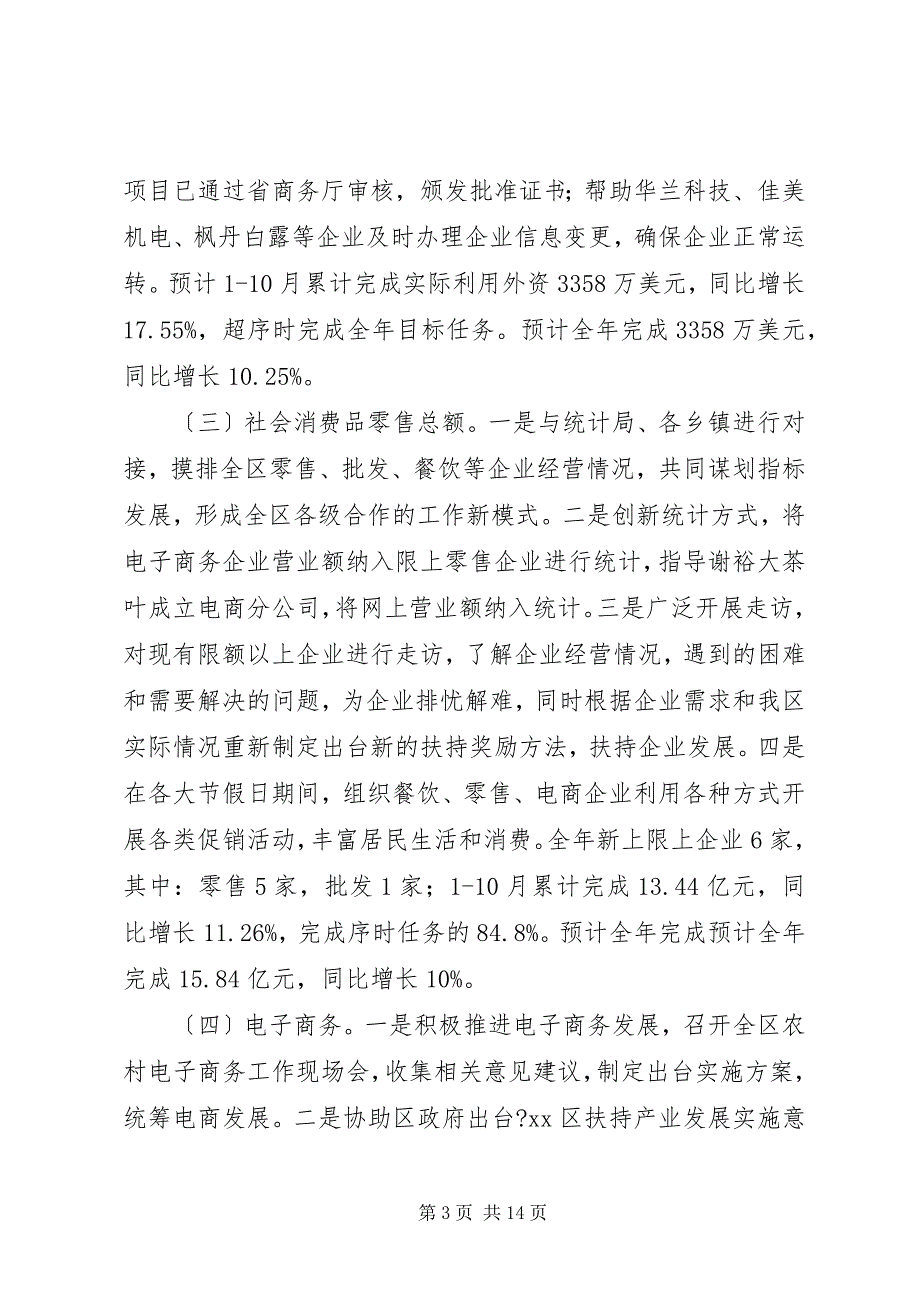 项目已通过省商务厅审核，颁发批准证书；帮助华兰科技、佳美
机电、枫丹白露等企业及时办理企业信息变更，确保企业正常运
转。预计 1-10 月累计完成实际利用外资 3358 万美元，同比增长
17.55%，超序时完成全年目标任务。预计全年完成 3358 万美元，
同比增长 10.25%。
〔三〕社会消费品零售总额。一是与统计局、各乡镇进行对
接，摸排全区零售、批发、餐饮等企业经营情况，共同谋划指标
发展，形成全区各级合作的工作新模式。二是创新统计方式，将
电子商务企业营业额纳入限上零售企业进行统计，指导谢裕大茶
叶成立电商分公司，将网上营业额纳入统计。三是广泛开展走访，
对现有限额以上企业进行走访，了解企业经营情况，遇到的困难
和需要解决的问题，为企业排忧解难，同时根据企业需求和我区
实际情况重新制定出台新的扶持奖励方法，扶持企业发展。四是
在各大节假日期间，组织餐饮、零售、电商企业利用各种方式开
展各类促销活动，丰富居民生活和消费。全年新上限上企业 6 家，
其中：零售 5 家，批发 1 家；1-10 月累计完成 13.44 亿元，同
比增长 11.26%，完成序时任务的 84.8%。预计全年完成预计全年
完成 15.84 亿元，同比增长 10%。
〔四〕电子商务。一是积极推进电子商务发展，召开全区农
村电子商务工作现场会，收集相关意见建议，制定出台实施方案，
统筹电商发展。二是协助区政府出台?xx 区扶持产业发展实施意
第 3 页 共 14 页